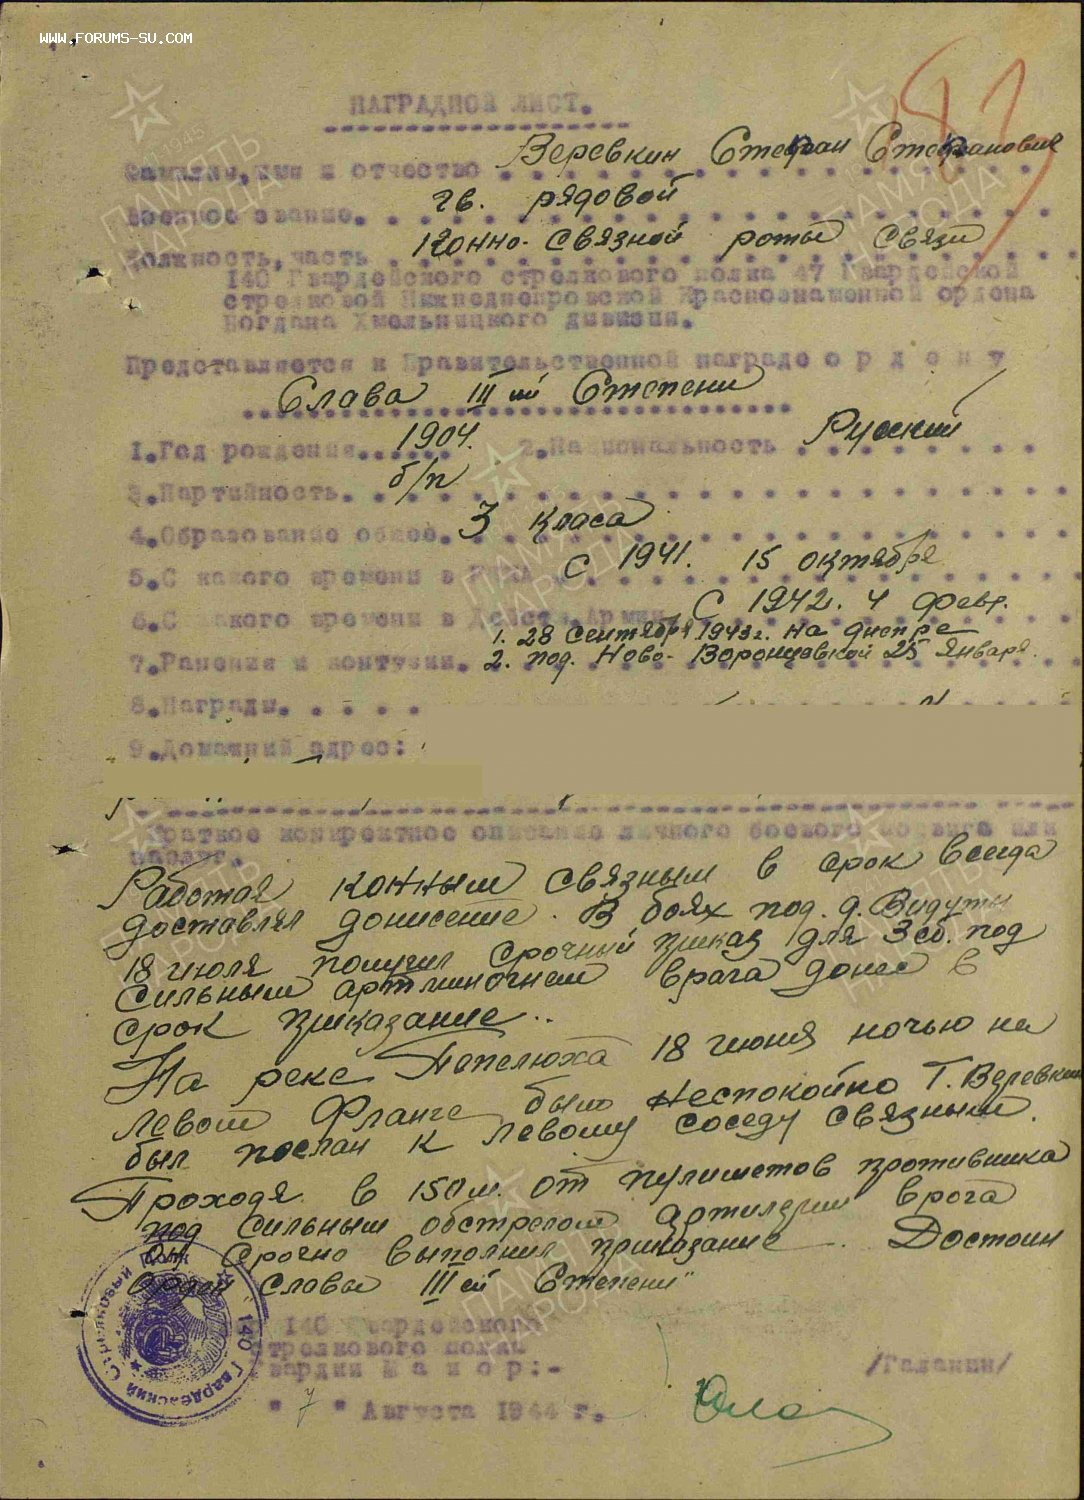 WWW.FORUMS-SU.COM
87
НАГРАДНОЙ ЛИСТ.
Фамилия, имя и отчество Веревкин Стефан Стефанович
Военное звание. гв. рядовой
Должность, часть конно-связной роты связи
140 Гвардейского стрелкового полка 47 Гвардейской
стрелковой Нижнеднепровской Краснознаменной ордена
Богдана Хмельницкого дивизии.
Представляется к Правительственной награде о р д е н у
Слава III ий Степени
1. Год рождения 1904. 2. Национальность Русский
3. Партийность. б/п
4. Образование общее. 3 класа
5. С какого времени в с 1941. 15 октября
6. С какого времени в Действ. Армии с 1942. 4 февр.
1. 28 сентября 1943 г. на днепре
7. Ранения и контузии. 2. под. Ново-Воронцовкой 25 января.
8. Награды.
9. Домашний адрес:
Краткое конкретное описание личного боевого подвига или
заслуг.
Работая конным связным в срок всегда
доставлял донисение. В боях под. д. Видуты
18 июля получил срочный приказ для 3 сб. под
сильным артминогнем врага донес в
срок приказание..
На реке Пепелюха 18 июня ночью на
левом Фланге было неспокойно Т. Веревкин
был послан к левому соседу связным.
Проходя в 150 м. от пулиметов противника
под сильным обстрелом артилерии врага
он срочно выполнил приказание. Достоин
Орден Славы III ей Степени"
140 Гвардейского
стрелкового полка
гвардии М а й о р :- /Галанин/
" 7 " Августа 1944 г.
140 Гвардейский Стрелковый Полк
ПАМЯТЬ НАРОДА